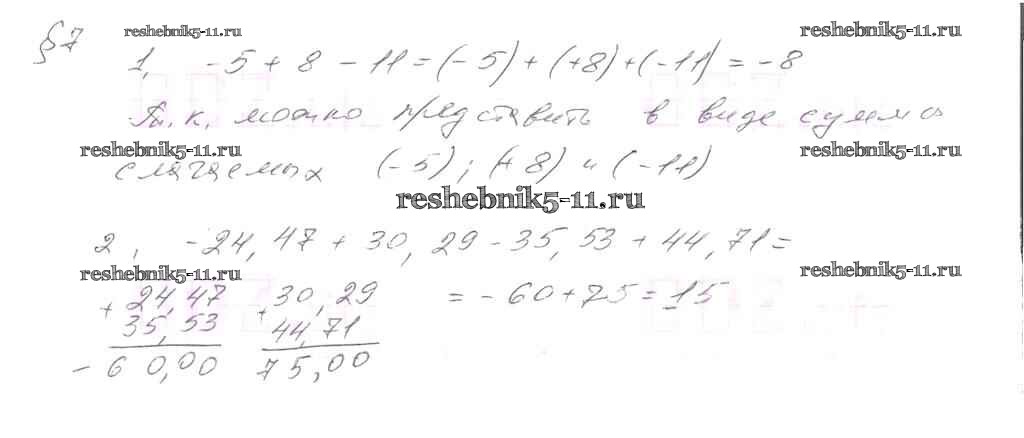 §7 reshebnik5-11.ru reshebnik5-11.ru
1, -5 + 8 - 11 = (-5) + (+8) + (-11) = -8
Т.к. можно представить в виде суммы
reshebnik5-11.ru reshebnik5-11.ru
слагаемых (-5); (+8) и (-11)
reshebnik5-11.ru
2, -24,47 + 30,29 - 35,53 + 44,71 =
reshebnik5-11.ru reshebnik5-11.ru
+ 24,47 + 30,29 = -60 + 75 = 15
35,53 44,71
- 60,00 75,00